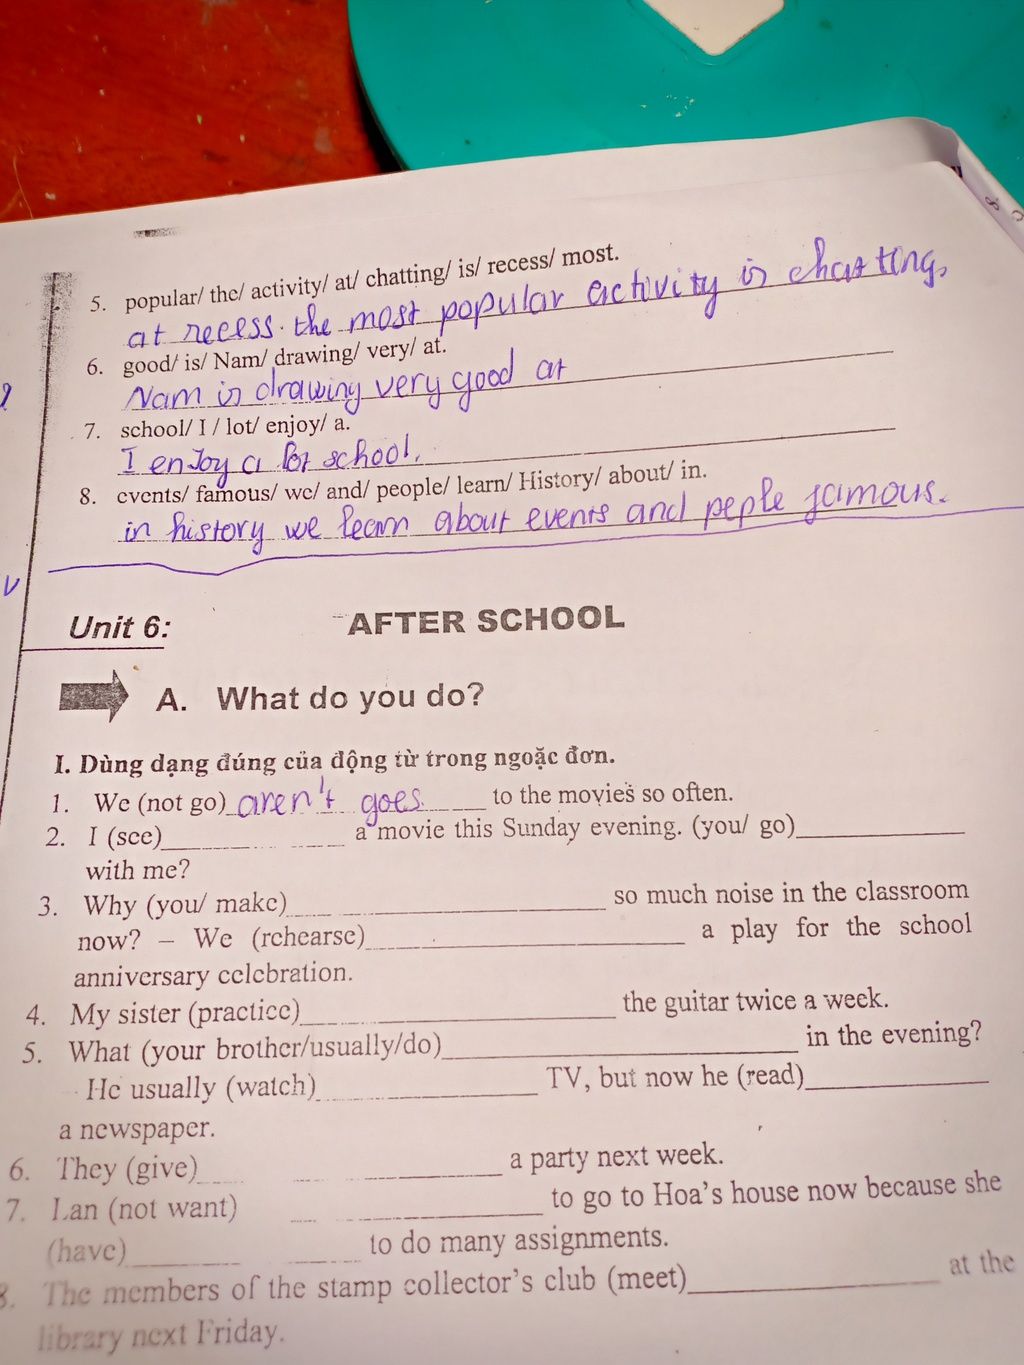 5. popular/ the/ activity/ at/ chatting/ is/ recess/ most.
at recess. the most popular activity is chatting,
6. good/ is/ Nam/ drawing/ very/ at.
Nam is drawing very good at
7. school/ I / lot/ enjoy/ a.
I enJoy a lot school.
8. events/ famous/ we/ and/ people/ learn/ History/ about/ in.
in history we learn about events and peple famous.
Unit 6: AFTER SCHOOL
A. What do you do?
I. Dùng dạng đúng của động từ trong ngoặc đơn.
1. We (not go) aren't goes to the movies so often.
2. I (see)____ a movie this Sunday evening. (you/ go)____
with me?
3. Why (you/ make)____ so much noise in the classroom
now? – We (rehearse)____ a play for the school
anniversary celebration.
4. My sister (practice)____ the guitar twice a week.
5. What (your brother/usually/do)____ in the evening?
- He usually (watch)____ TV, but now he (read)____
a newspaper.
6. They (give)____ a party next week.
7. Lan (not want) ____ to go to Hoa's house now because she
(have)____ to do many assignments.
8. The members of the stamp collector's club (meet)____ at the
library next Friday.